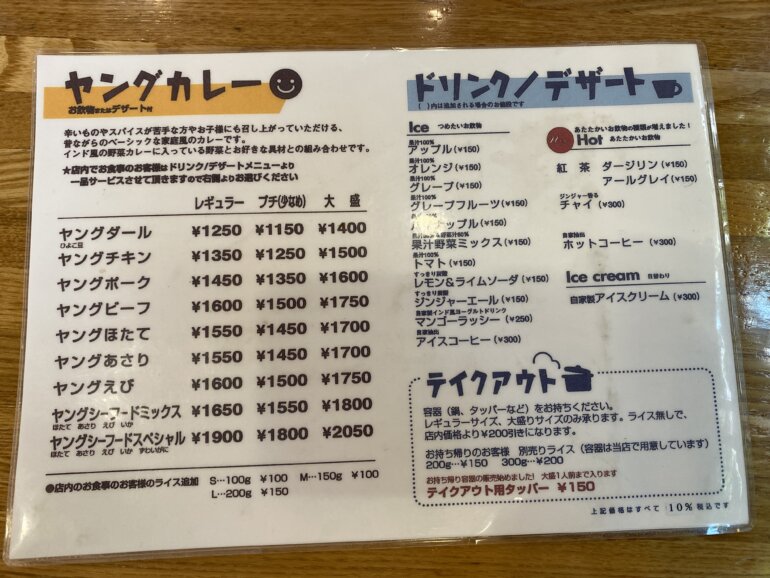 ヤングカレー
お飲物またはデザート付
辛いものやスパイスが苦手な方やお子様にも召し上がっていただける、
昔ながらのベーシックな家庭風のカレーです。
インド風の野菜カレーに入っている野菜とお好きな具材との組み合わせです。
★店内でお食事のお客様はドリンク/デザートメニューより
一品サービスさせて頂きますので右側よりお選びください
レギュラー プチ(少なめ) 大 盛
ヤングダール ¥1250 ¥1150 ¥1400
ひよこ豆
ヤングチキン ¥1350 ¥1250 ¥1500
ヤングポーク ¥1450 ¥1350 ¥1600
ヤングビーフ ¥1600 ¥1500 ¥1750
ヤングほたて ¥1550 ¥1450 ¥1700
ヤングあさり ¥1550 ¥1450 ¥1700
ヤングえび ¥1600 ¥1500 ¥1750
ヤングシーフードミックス ¥1650 ¥1550 ¥1800
ほたて あさり えび いか
ヤングシーフードスペシャル ¥1900 ¥1800 ¥2050
ほたて あさり えび いか ずわいがに
●店内のお食事のお客様のライス追加 S…100g ¥100 M…150g ¥100
L…200g ¥150
ドリンク/デザート
( )内は追加される場合のお値段です
Ice つめたいお飲物
果汁100%
アップル(¥150)
果汁100%
オレンジ(¥150)
果汁100%
グレープ(¥150)
果汁100%
グレープフルーツ(¥150)
パイナップル(¥150)
果汁野菜ミックス(¥150)
果汁100%
トマト(¥150)
すっきり炭酸
レモン&ライムソーダ(¥150)
すっきり炭酸
ジンジャーエール(¥150)
自家製インド風ヨーグルトドリンク
マンゴーラッシー(¥250)
自家抽出
アイスコーヒー(¥300)
あたたかいお飲物の種類が増えました!
Hot あたたかいお飲物
紅 茶 ダージリン(¥150)
アールグレイ(¥150)
ジンジャー香る
チャイ(¥300)
自家抽出
ホットコーヒー(¥300)
Ice cream 日替わり
自家製アイスクリーム(¥300)
テイクアウト
容器(鍋、タッパーなど)をお持ちください。
レギュラーサイズ、大盛りサイズのみ承ります。ライス無しで、
店内価格より¥200引きになります。
お持ち帰りのお客様 別売りライス(容器は当店で用意しています)
200g…¥150 300g…¥200
お持ち帰り容器の販売始めました! 大盛1人前まで入ります
テイクアウト用タッパー ¥150
上記価格はすべて 10%税込です